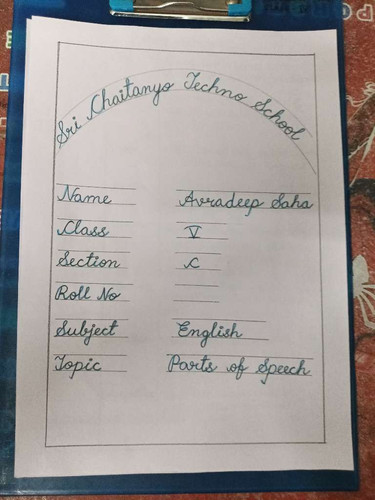 Sri Chaitanya Techno School
Name Avradeep Saha
Class V
Section C
Roll No
Subject English
Topic Parts of Speech